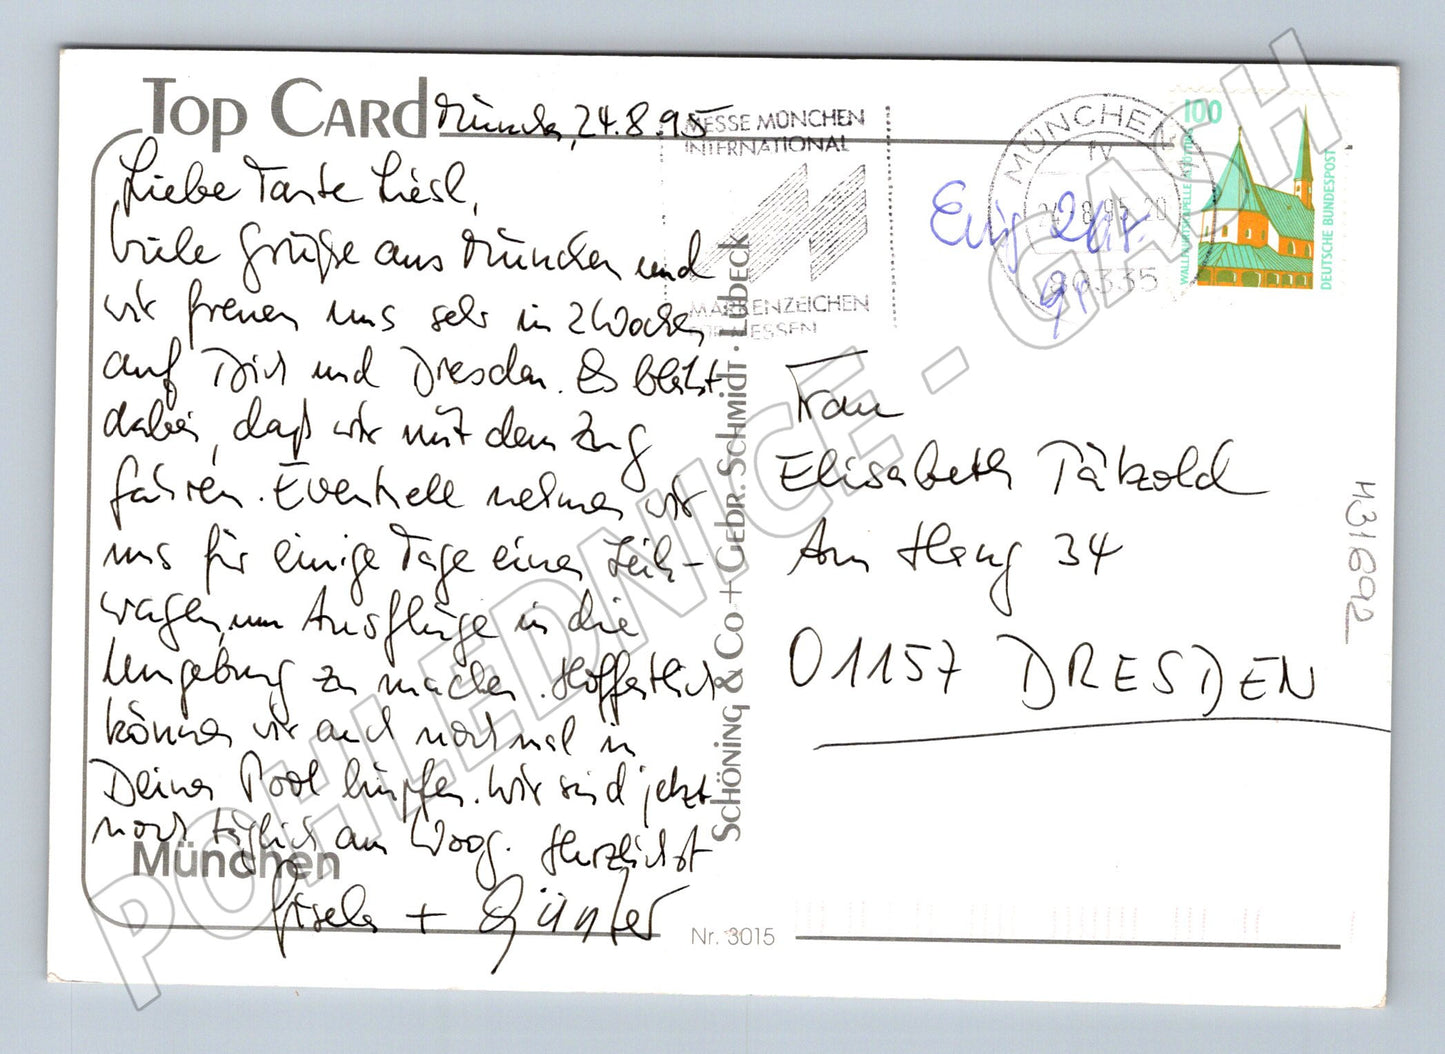 TOP CARD
München, 24.8.95
Liebe Tante Liesl,
viele Grüße aus München und
wir freuen uns sehr in 2 Wochen
auf Dich und Dresden. Es bleibt
dabei, daß wir mit dem Zug
fahren. Eventuell nehmen wir
uns für einige Tage einen Leih-
wagen, um Ausflüge in die
Umgebung zu machen. Hoffentlich
können wir auch noch mal in
Deinen Pool hüpfen. Wir sind jetzt
noch täglich am Woog. Herzlichst
Gisela + Günter
München
Nr. 3015
SCHÖNING & CO + GEBR. SCHMIDT · LÜBECK
MESSE MÜNCHEN
INTERNATIONAL
MARKENZEICHEN
FÜR MESSEN
MÜNCHEN
fv
24.-8.95.20
80335
Eing 26/8.
100
WALLFAHRTSKAPELLE ALTÖTTING
DEUTSCHE BUNDESPOST
Frau
Elisabeth Pätzold
Am Hang 34
01157 DRESDEN
H31692
POHLEDNICE - GASH